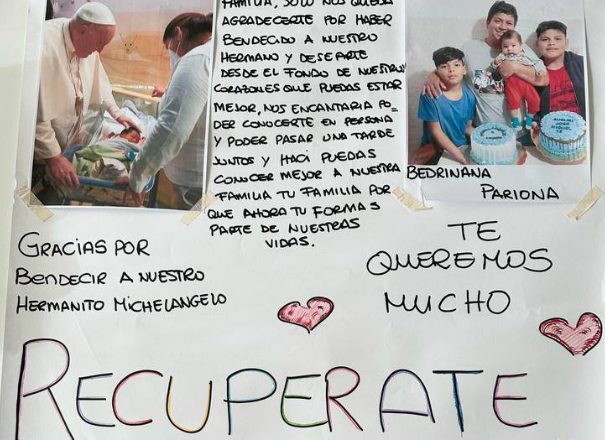 FAMILIA, SOLO NOS QUEDA
AGRADECERTE POR HABER
BENDECIDO A NUESTRO
HERMANO Y DESEARTE
DESDE EL FONDO DE NUESTROS
CORAZONES QUE PUEDAS ESTAR
MEJOR, NOS ENCANTARIA PO-
DER CONOCERTE EN PERSONA
Y PODER PASAR UNA TARDE
JUNTOS Y HACI PUEDAS
CONOCER MEJOR A NUESTRA
FAMILIA TU FAMILIA POR
QUE AHORA TU FORMAS
PARTE DE NUESTRAS
VIDAS.
BEDRINANA
PARIONA
GRACIAS POR
BENDECIR A NUESTRO
HERMANITO MICHELANGELO
TE
QUEREMOS
MUCHO
RECUPERATE